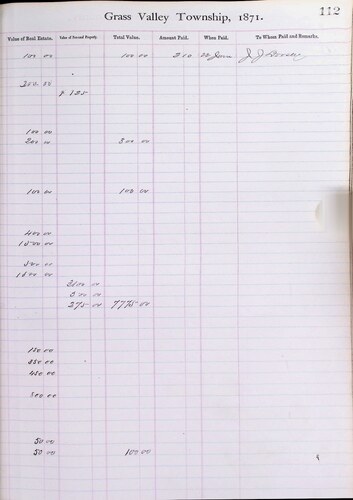 Grass Valley Township, 1871. 112
Value of Real Estate. Value of Personal Property. Total Value. Amount Paid. When Paid. To Whom Paid and Remarks.
100 00 100 00 2 10
350 00
$ 125
100 00
200 00 300 00
100 00 100 00
400 00
1500 00
1500 00
300 00
275 00 7775 00
150 00
350 00
450 00
300 00
50 00
50 00 100 00